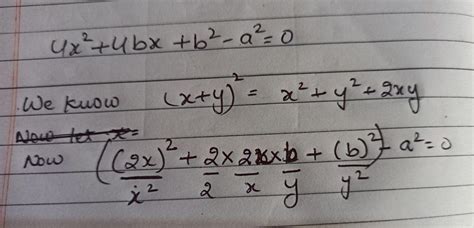 4x² + 4bx + b² - a² = 0
We know (x+y)² = x² + y² + 2xy
Now let x=
Now ((2x)² + 2 × 2x × b + (b)²) - a² = 0
x² 2 x y y²